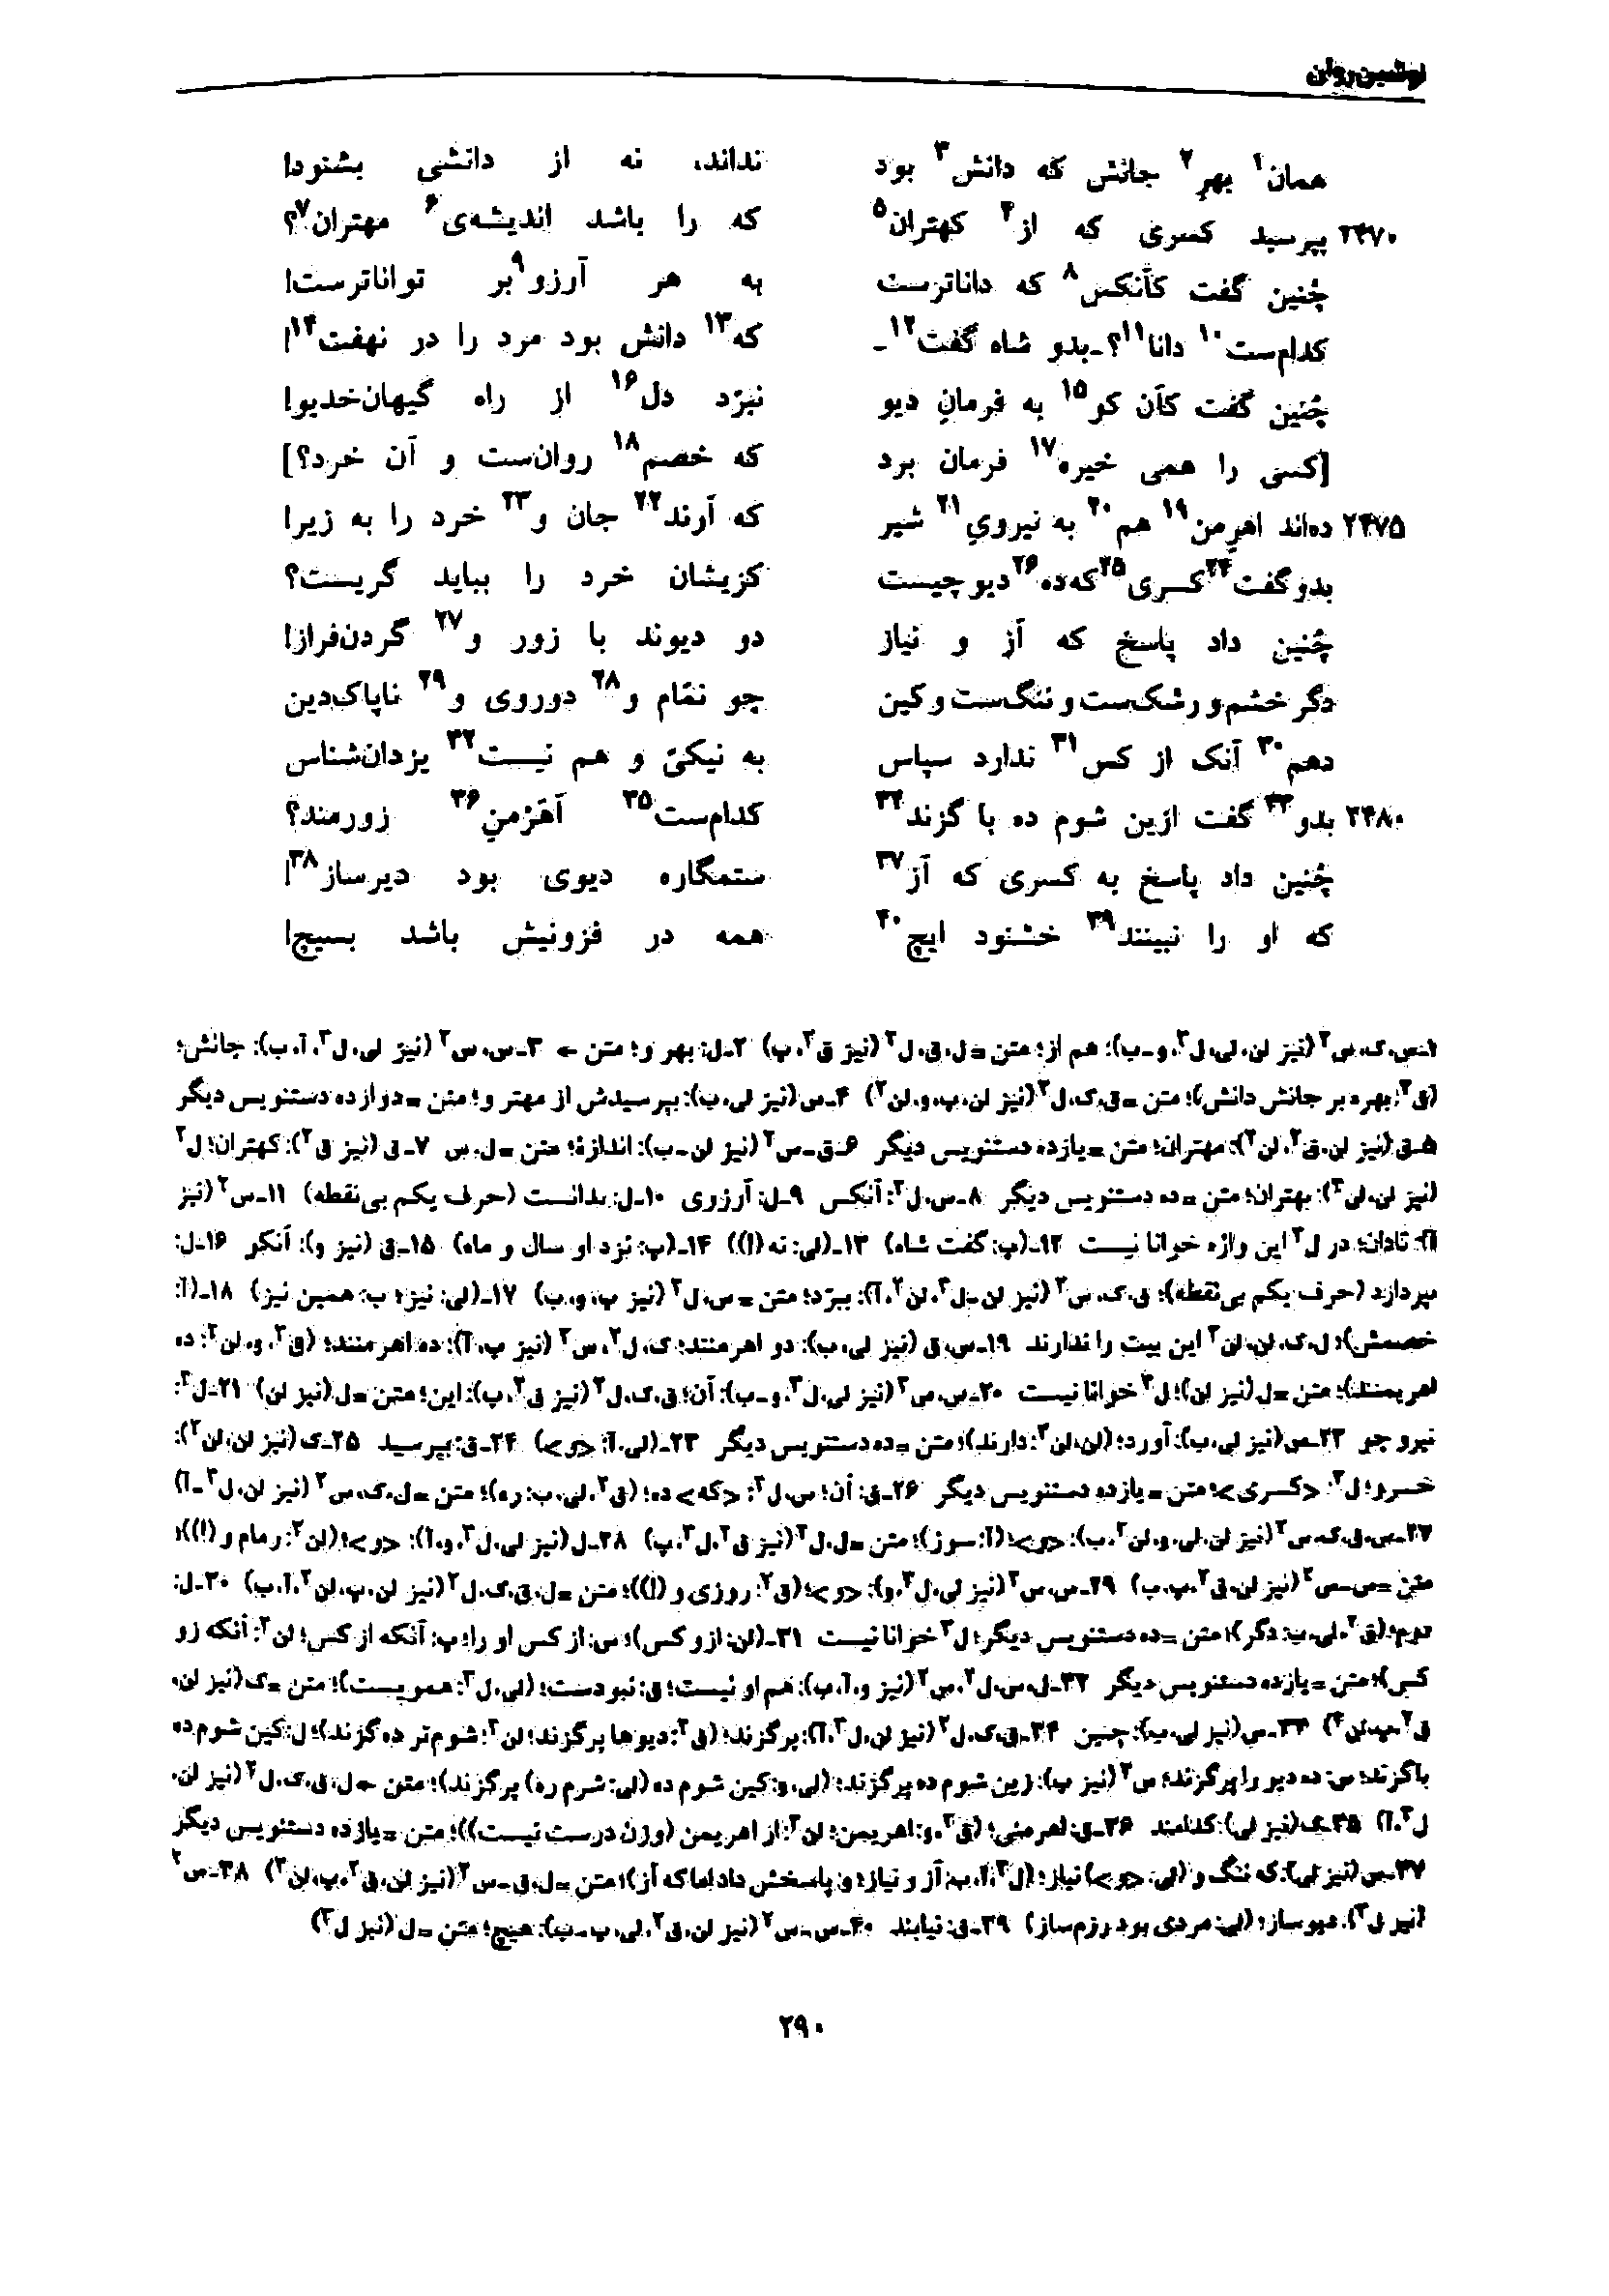 نوشین‌روان
همان۱ بهرِ۲ جانش که دانش۳ بود نداند، نه از دانشی بشنود!
۲۴۷۰ بپرسید کسری که از۴ کهتران۵ که را باشد اندیشه‌ی۶ مهتران۷؟
چُنین گفت کآنکس۸ که داناترست به هر آرزو۹ بر تواناترست!
کدام‌ست۱۰ دانا۱۱؟ ـ بدو شاه گفت۱۲ ـ که۱۳ دانش بود مرد را در نهفت۱۴!
چُنین گفت کآن کو۱۵ به فرمانِ دیو نبرّد دل۱۶ از راه گیهان‌خدیو!
[کسی را همی خیره۱۷ فرمان برد که خصم۱۸ روان‌ست و آن خرد؟]
۲۴۷۵ ده‌اند اهرمن۱۹ هم۲۰ به نیروی۲۱ شیر که آرند۲۲ جان و۲۳ خرد را به زیر!
بدو گفت۲۴ کسری۲۵ که ده۲۶ دیو چیست کزیشان خرد را بباید گریست؟
چُنین داد پاسخ که آز و نیاز دو دیوند با زور و۲۷ گردن‌فراز!
دگر خشم و رشک‌ست و ننگ‌ست و کین چو نمّام و۲۸ دوروی و۲۹ ناپاک‌دین
دهم۳۰ آنک از کس۳۱ ندارد سپاس به نیکیّ و هم نیست۳۲ یزدان‌شناس
۲۴۸۰ بدو۳۳ گفت ازین شوم ده با گزند۳۴ کدام‌ست۳۵ آهَرْمنِ۳۶ زورمند؟
چُنین داد پاسخ به کسری که آز۳۷ ستمگاره دیوی بود دیرساز۳۸!
که او را نبینند۳۹ خشنود ایچ۴۰ همه در فزونیش باشد بسیچ!
۱ـ س، ک، س۲ (نیز لن، لی، ل۳، و ـ ب): هم از؛ متن = ل، ق، ل۲ (نیز ق۲، پ) ۲ـ ل: بهر و؛ متن ← ۳ـ س، س۲ (نیز لی، ل۳، آ، ب): جانش؛
(ق۲: بهره بر جانش دانش)؛ متن = ق، ک، ل۲ (نیز لن، پ، و، لن۲) ۴ـ س (نیز لی، ب): بپرسیدش از مهتر و؛ متن = دوازده دستنویس دیگر
۵ـ ق (نیز لن، ق۲، لن۲): مهتران؛ متن = یازده دستنویس دیگر ۶ـ ق ـ س۲ (نیز لن ـ ب): اندازهٔ؛ متن = ل، س ۷ـ ق (نیز ق۲): کهتران؛ ل۲
(نیز لن، لن۲): بهتران؛ متن = ده دستنویس دیگر ۸ـ س، ل۲: آنکس ۹ـ ل: آرزوی ۱۰ـ ل: بدانست (حرف یکم بی‌نقطه) ۱۱ـ س۲ (نیز
آ): نادان؛ در ل۳ این واژه خوانا نیست ۱۲ـ (پ: گفت شاه) ۱۳ـ (لی: نه (!)) ۱۴ـ (پ: نزد او سال و ماه) ۱۵ـ ق (نیز و): آنکو ۱۶ـ ل:
بپردازد (حرف یکم بی‌نقطه)؛ ق، ک، س۲ (نیز لن ـ ل۳، لن۲، آ): ببرّد؛ متن = س، ل۲ (نیز پ، و، ب) ۱۷ـ (لی: نیز؛ ب: همین نیز) ۱۸ـ (آ:
خصمش)؛ ل، ک، لن، لن۲ این بیت را ندارند ۱۹ـ س، ق (نیز لی، ب): دو اهرمنند؛ ک، ل۲، س۲ (نیز پ، آ): ده اهرمنند؛ (ق۲، و، لن۲: ده
اهریمنند)؛ متن = ل (نیز لن)؛ ل۳ خوانا نیست ۲۰ـ س، س۲ (نیز لی، ل۳، و ـ ب): آن؛ ق، ک، ل۲ (نیز ق۲، پ): این؛ متن = ل (نیز لن) ۲۱ـ ل۲:
نیرو چو ۲۲ـ س (نیز لی، ب): آورد؛ (لن، لن۲: دارند)؛ متن = ده دستنویس دیگر ۲۳ـ (لی، آ: <و>) ۲۴ـ ق: بپرسید ۲۵ـ ک (نیز لن، لن۲):
خسرو؛ ل۲: <کسری>؛ متن = یازده دستنویس دیگر ۲۶ـ ق: آن؛ س، ل۲: <که> ده؛ (ق۲، لی، ب: ره)؛ متن = ل، ک، س۲ (نیز لن، ل۳ ـ آ)
۲۷ـ س، ق، ک، س۲ (نیز لن، لی، و، لن۲، ب): <و>؛ (آ: سوز)؛ متن = ل، ل۲ (نیز ق۲، ل۳، پ) ۲۸ـ ل (نیز لی، ل۳، و، آ): <و>؛ (لن۲: رمام و (!))؛
متن = س ـ س۲ (نیز لن، ق۲، پ، ب) ۲۹ـ س، س۲ (نیز لی، ل۳، و): <و>؛ (ق۲: روزی و (!))؛ متن = ل، ق، ک، ل۲ (نیز لن، پ، لن۲، آ، ب) ۳۰ـ ل:
دوم؛ (ق۲، لی، ب: دگر)؛ متن = ده دستنویس دیگر؛ ل۳ خوانا نیست ۳۱ـ (لن: ازو کس)؛ س: از کس او را؛ پ: آنکه از کس؛ لن۲: آنکه زو
کس)؛ متن = یازده دستنویس دیگر ۳۲ـ ل، س، ل۲، س۲ (نیز و، آ، ب): هم او نیست؛ ق: نبودست؛ (لی، ل۳: همویست)؛ متن = ک (نیز لن،
ق۲، پ، لن۲) ۳۳ـ س (نیز لی، ب): چنین ۳۴ـ ق، ک، ل۲ (نیز لن، ل۳، آ): پرگزند؛ (ق۲: دیوها پرگزند؛ لن۲: شوم‌تر ده گزند)؛ ل: کین شوم ده
باگزند؛ س: ده دیو را پرگزند؛ س۲ (نیز پ): زین شوم ده پرگزند؛ (لی، و: کین شوم ده (لی: شرم ره) پرگزند)؛ متن ← ل، ق، ک، ل۲ (نیز لن،
ل۳، آ) ۳۵ـ ک (نیز لی): کدامند ۳۶ـ ق: اهرمنی؛ (ق۲، و: اهریمن؛ لن۲: از اهریمن (وزن درست نیست))؛ متن = یازده دستنویس دیگر
۳۷ـ س (نیز لی): که ننگ و (لی: <و>) نیاز؛ (ل۳، آ، ب: آز و نیاز؛ و: پاسخش داد اما که آز)؛ متن = ل، ق ـ س۲ (نیز لن، ق۲، پ، لن۲) ۳۸ـ س۲
(نیز ل۳): دیوساز؛ (لی: مردی بود رزم‌ساز) ۳۹ـ ق: نیابند ۴۰ـ س ـ س۲ (نیز لن، ق۲، لی، پ ـ ب): هیچ؛ متن = ل (نیز ل۳)
۲۹۰